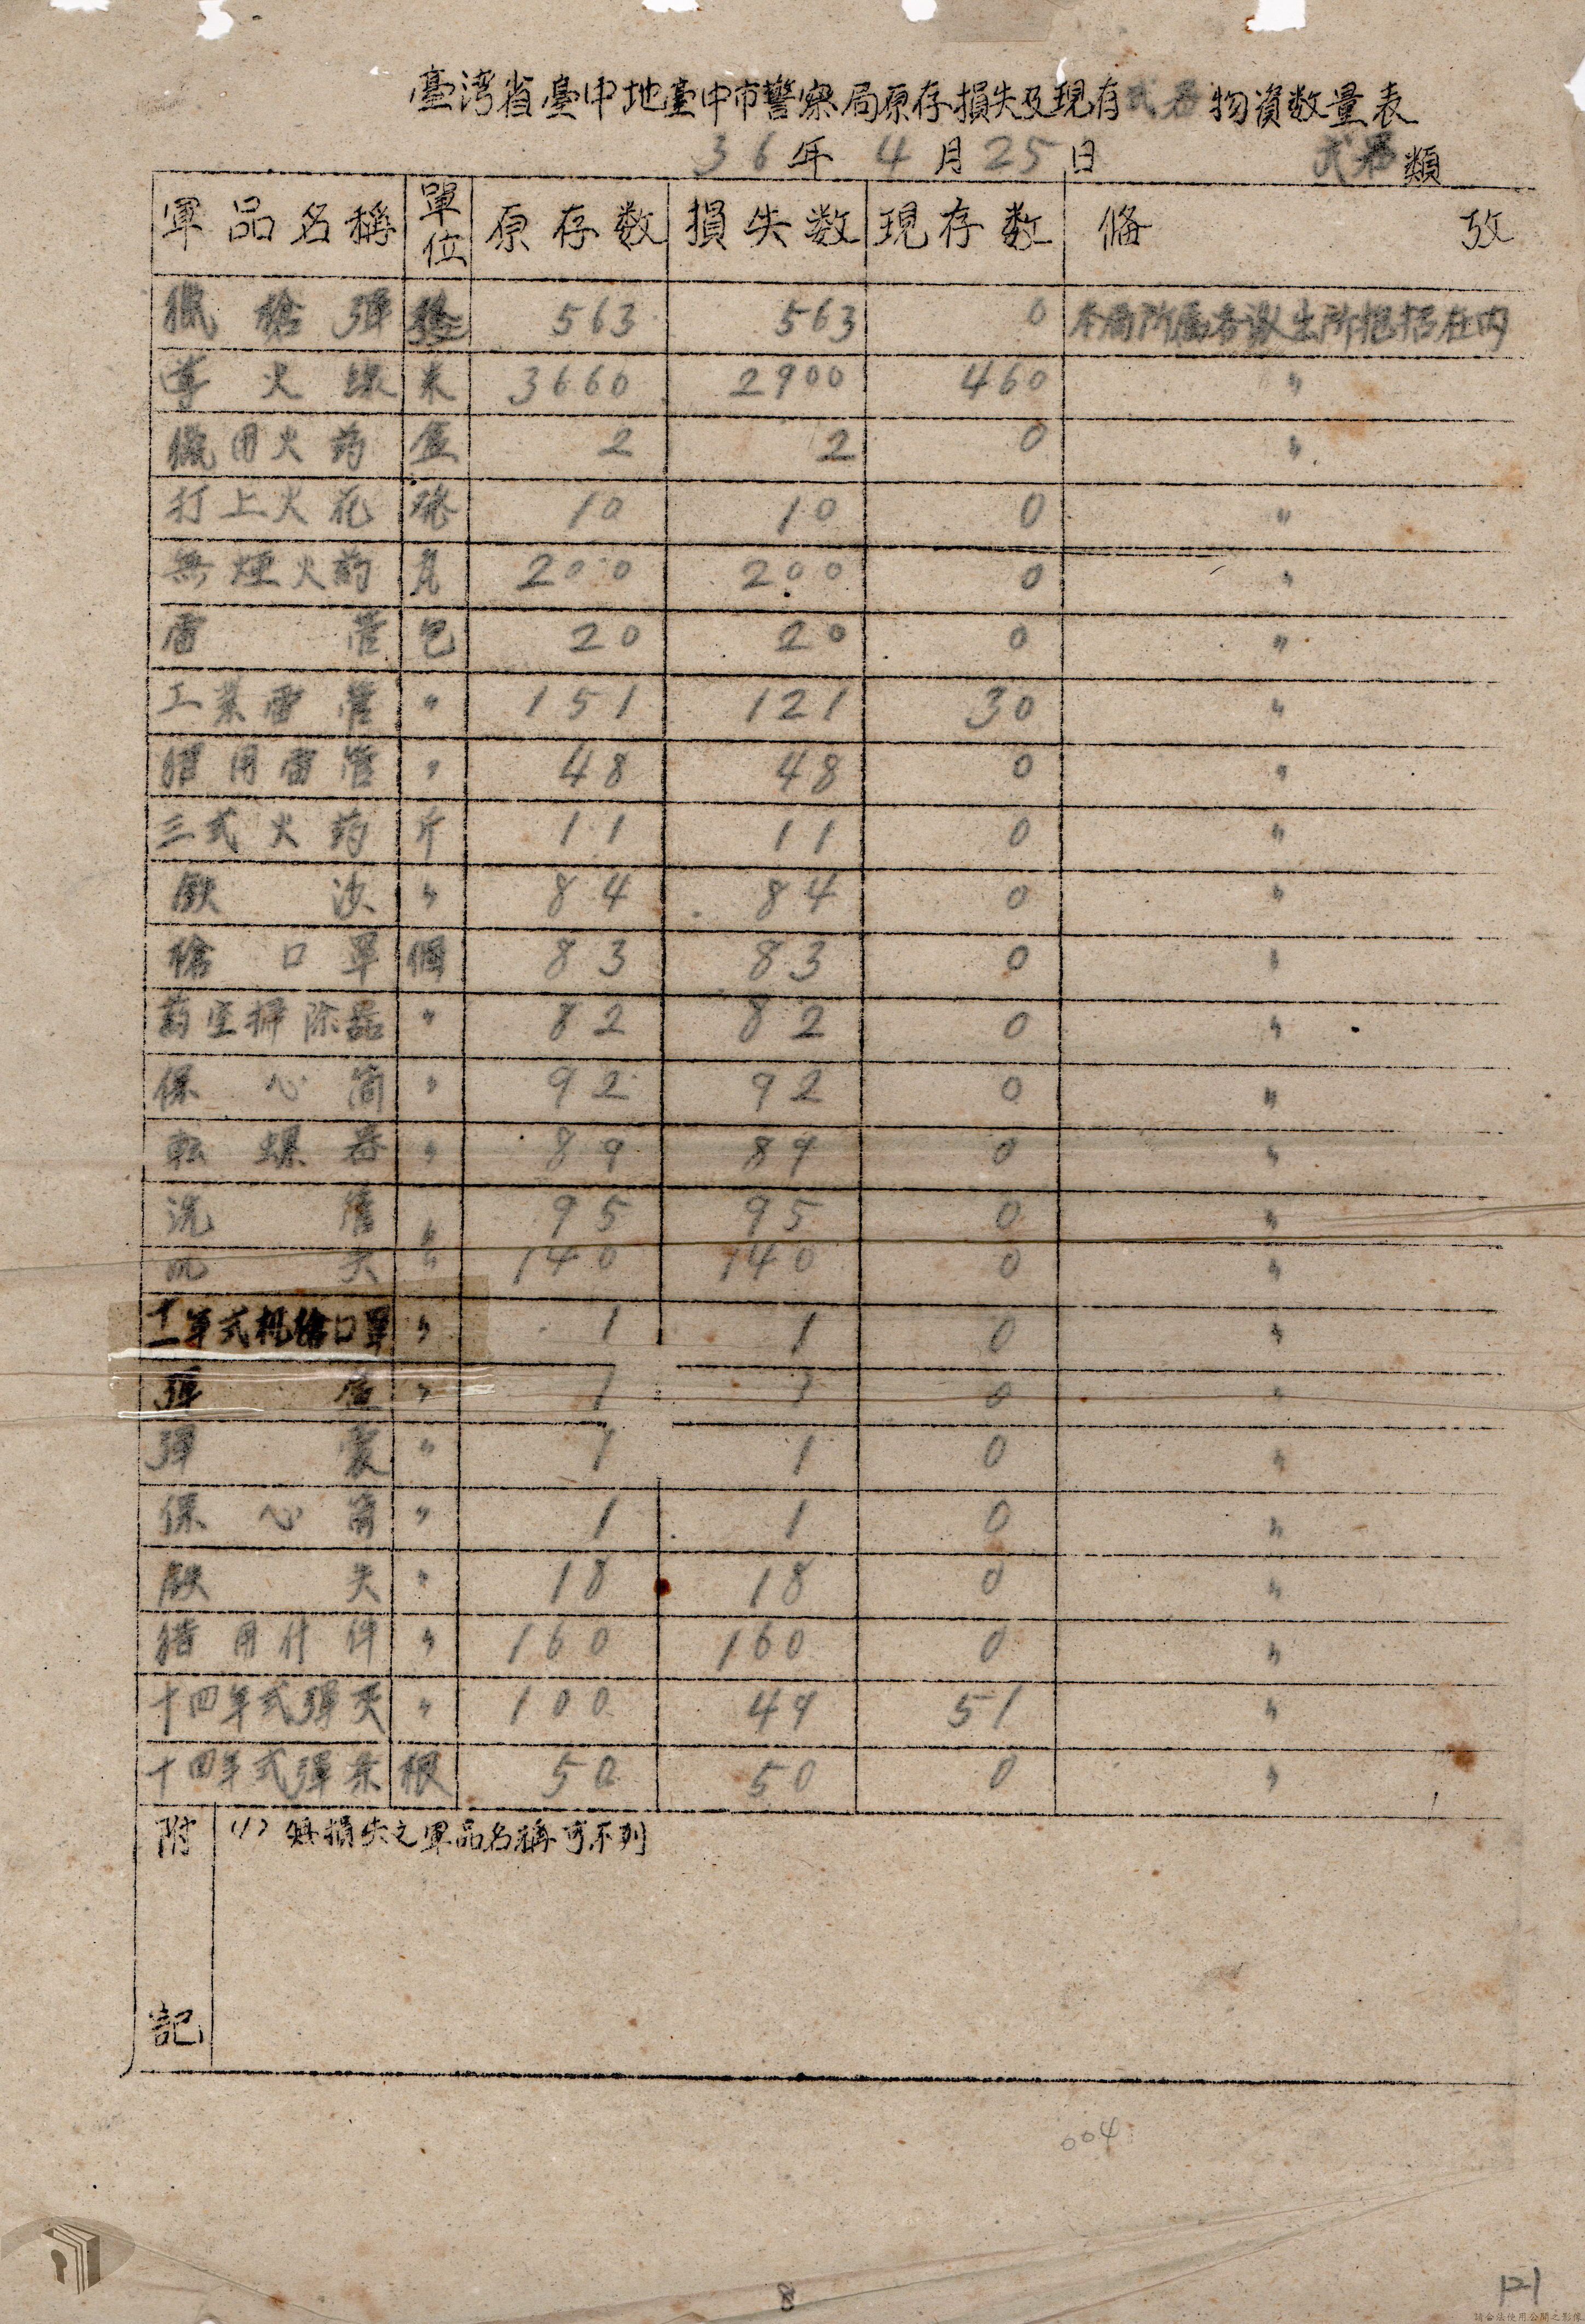 臺湾省臺中地臺中市警察局原存損失及現存武器物資数量表
36年4月25日 武器類
軍品名稱 單位 原存数 損失数 現存数 俻 攷
獵槍彈 發 563 563 0 本局所属各派出所包括在内
導火線 米 3660 2900 460 〃
獵用火葯 盒 2 2 0 〃
打上火花 發 10 10 0 〃
無煙火葯 瓦 200 200 0 〃
雷管 包 20 20 0 〃
工業雷管 〃 151 121 30 〃
猎用雷管 〃 48 48 0 〃
三式火药 斤 11 11 0 〃
〃 84 84 0 〃
槍口罩 個 83 83 0 〃
葯室掃除器 〃 82 82 0 〃
保心筒 〃 92 92 0 〃
転螺器 〃 89 89 0 〃
洗管 〃 95 95 0 〃
〃 140 140 0 〃
十一年式机槍口罩 〃 1 1 0 〃
彈盒 〃 1 1 0 〃
彈囊 〃 1 1 0 〃
保心筒 〃 1 1 0 〃
〃 18 18 0 〃
猎用付件 〃 160 160 0 〃
十四年式彈夾 〃 100 49 51 〃
十四年式彈条 根 50 50 0 〃
附記 (1) 無損失之軍品名稱可不列
004
8
121
請合法使用公開之影像